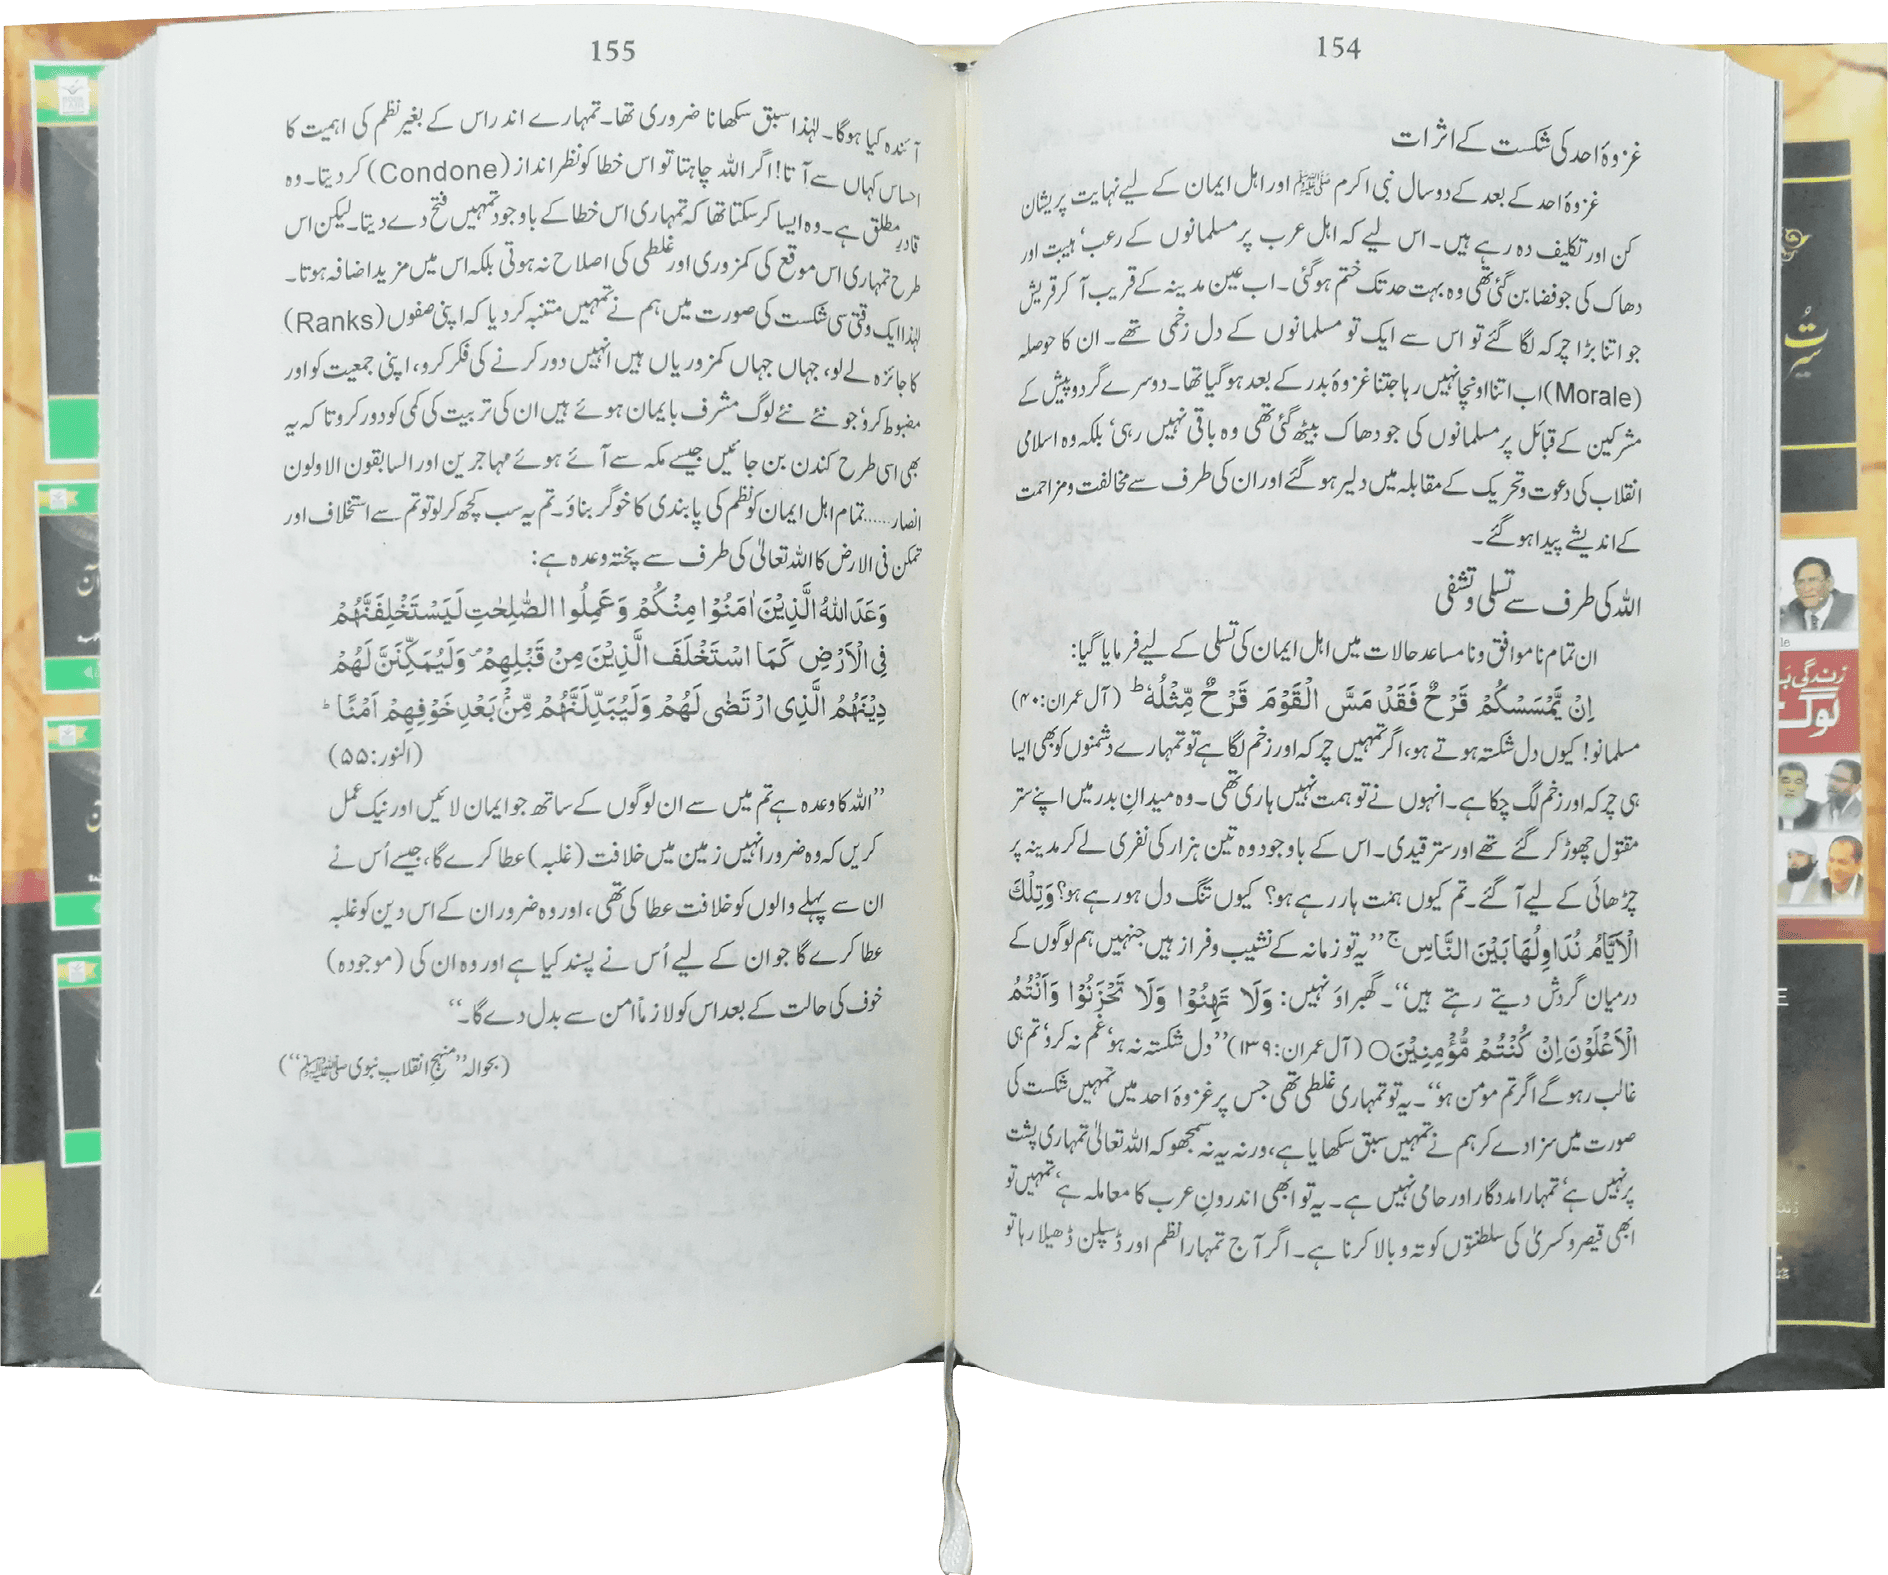 154
غزوۂ احد کی شکست کے اثرات
غزوۂ احد کے بعد کے دو سال نبی اکرم ﷺ اور اہل ایمان کے لیے نہایت پریشان
کن اور تکلیف دہ رہے ہیں۔ اس لیے کہ اہل عرب پر مسلمانوں کے رعب' ہیبت اور
دھاک کی جو فضا بن گئی تھی وہ بہت حد تک ختم ہو گئی۔ اب عین مدینہ کے قریب آ کر قریش
جو اتنا بڑا چرکہ لگا گئے تو اس سے ایک تو مسلمانوں کے دل زخمی تھے۔ ان کا حوصلہ
(Morale) اب اتنا اونچا نہیں رہا جتنا غزوۂ بدر کے بعد ہو گیا تھا۔ دوسرے گردوپیش کے
مشرکین کے قبائل پر مسلمانوں کی جو دھاک بیٹھ گئی تھی وہ باقی نہیں رہی' بلکہ وہ اسلامی
انقلاب کی دعوت و تحریک کے مقابلہ میں دلیر ہو گئے اور ان کی طرف سے مخالفت و مزاحمت
کے اندیشے پیدا ہو گئے۔
اللہ کی طرف سے تسلی و تشفی
ان تمام ناموافق و نامساعد حالات میں اہل ایمان کی تسلی کے لیے فرمایا گیا:
اِنْ يَّمْسَسْكُمْ قَرْحٌ فَقَدْ مَسَّ الْقَوْمَ قَرْحٌ مِّثْلُهٗ ؕ (آل عمران:۴۰)
مسلمانو! کیوں دل شکستہ ہوتے ہو، اگر تمہیں چرکہ اور زخم لگا ہے تو تمہارے دشمنوں کو بھی ایسا
ہی چرکہ اور زخم لگ چکا ہے۔ انہوں نے تو ہمت نہیں ہاری تھی۔ وہ میدانِ بدر میں اپنے ستر
مقتول چھوڑ کر گئے تھے اور ستر قیدی۔ اس کے باوجود وہ تین ہزار کی نفری لے کر مدینہ پر
چڑھائی کے لیے آ گئے۔ تم کیوں ہمت ہار رہے ہو؟ کیوں تنگ دل ہو رہے ہو؟ وَتِلْكَ
الْاَيَّامُ نُدَاوِلُهَا بَيْنَ النَّاسِ ۚ ’’یہ تو زمانہ کے نشیب و فراز ہیں جنہیں ہم لوگوں کے
درمیان گردش دیتے رہتے ہیں‘‘۔ گھبراؤ نہیں: وَلَا تَهِنُوْا وَلَا تَحْزَنُوْا وَاَنْتُمُ
الْاَعْلَوْنَ اِنْ كُنْتُمْ مُّؤْمِنِيْنَ○ (آل عمران:۱۳۹) ’’دل شکستہ نہ ہو' غم نہ کرو' تم ہی
غالب رہو گے اگر تم مومن ہو‘‘۔ یہ تو تمہاری غلطی تھی جس پر غزوۂ احد میں تمہیں شکست کی
صورت میں سزا دے کر ہم نے تمہیں سبق سکھایا ہے، ورنہ یہ نہ سمجھو کہ اللہ تعالیٰ تمہاری پشت
پر نہیں ہے' تمہارا مددگار اور حامی نہیں ہے۔ یہ تو ابھی اندرونِ عرب کا معاملہ ہے' تمہیں تو
ابھی قیصر و کسریٰ کی سلطنتوں کو تہ و بالا کرنا ہے۔ اگر آج تمہارا نظم اور ڈسپلن ڈھیلا رہا تو
155
آئندہ کیا ہوگا۔ لہٰذا سبق سکھانا ضروری تھا۔ تمہارے اندر اس کے بغیر نظم کی اہمیت کا
احساس کہاں سے آتا! اگر اللہ چاہتا تو اس خطا کو نظر انداز (Condone) کر دیتا۔ وہ
قادرِ مطلق ہے۔ وہ ایسا کر سکتا تھا کہ تمہاری اس خطا کے باوجود تمہیں فتح دے دیتا۔ لیکن اس
طرح تمہاری اس موقع کی کمزوری اور غلطی کی اصلاح نہ ہوتی بلکہ اس میں مزید اضافہ ہوتا۔
لہٰذا ایک وقتی سی شکست کی صورت میں ہم نے تمہیں متنبہ کر دیا کہ اپنی صفوں (Ranks)
کا جائزہ لے لو، جہاں جہاں کمزوریاں ہیں انہیں دور کرنے کی فکر کرو، اپنی جمعیت کو اور
مضبوط کرو' جو نئے نئے لوگ مشرف بایمان ہوئے ہیں ان کی تربیت کی کمی کو دور کرو تا کہ یہ
بھی اسی طرح کندن بن جائیں جیسے مکہ سے آئے ہوئے مہاجرین اور السابقون الاولون
انصار......تمام اہل ایمان کو نظم کی پابندی کا خوگر بناؤ۔ تم یہ سب کچھ کر لو تو تم سے استخلاف اور
تمکن فی الارض کا اللہ تعالیٰ کی طرف سے پختہ وعدہ ہے:
وَعَدَ اللّٰهُ الَّذِيْنَ اٰمَنُوْا مِنْكُمْ وَعَمِلُوا الصّٰلِحٰتِ لَيَسْتَخْلِفَنَّهُمْ
فِى الْاَرْضِ كَمَا اسْتَخْلَفَ الَّذِيْنَ مِنْ قَبْلِهِمْ ۪ وَلَيُمَكِّنَنَّ لَهُمْ
دِيْنَهُمُ الَّذِى ارْتَضٰى لَهُمْ وَلَيُبَدِّلَنَّهُمْ مِّنْۢ بَعْدِ خَوْفِهِمْ اَمْنًا ؕ
(النور:۵۵)
’’اللہ کا وعدہ ہے تم میں سے ان لوگوں کے ساتھ جو ایمان لائیں اور نیک عمل
کریں کہ وہ ضرور انہیں زمین میں خلافت (غلبہ) عطا کرے گا، جیسے اُس نے
ان سے پہلے والوں کو خلافت عطا کی تھی، اور وہ ضرور ان کے اس دین کو غلبہ
عطا کرے گا جو ان کے لیے اُس نے پسند کیا ہے اور وہ ان کی (موجودہ)
خوف کی حالت کے بعد اس کو لازماً امن سے بدل دے گا۔‘‘
(بحوالہ ’’منہجِ انقلابِ نبوی ﷺ‘‘)
سیرت